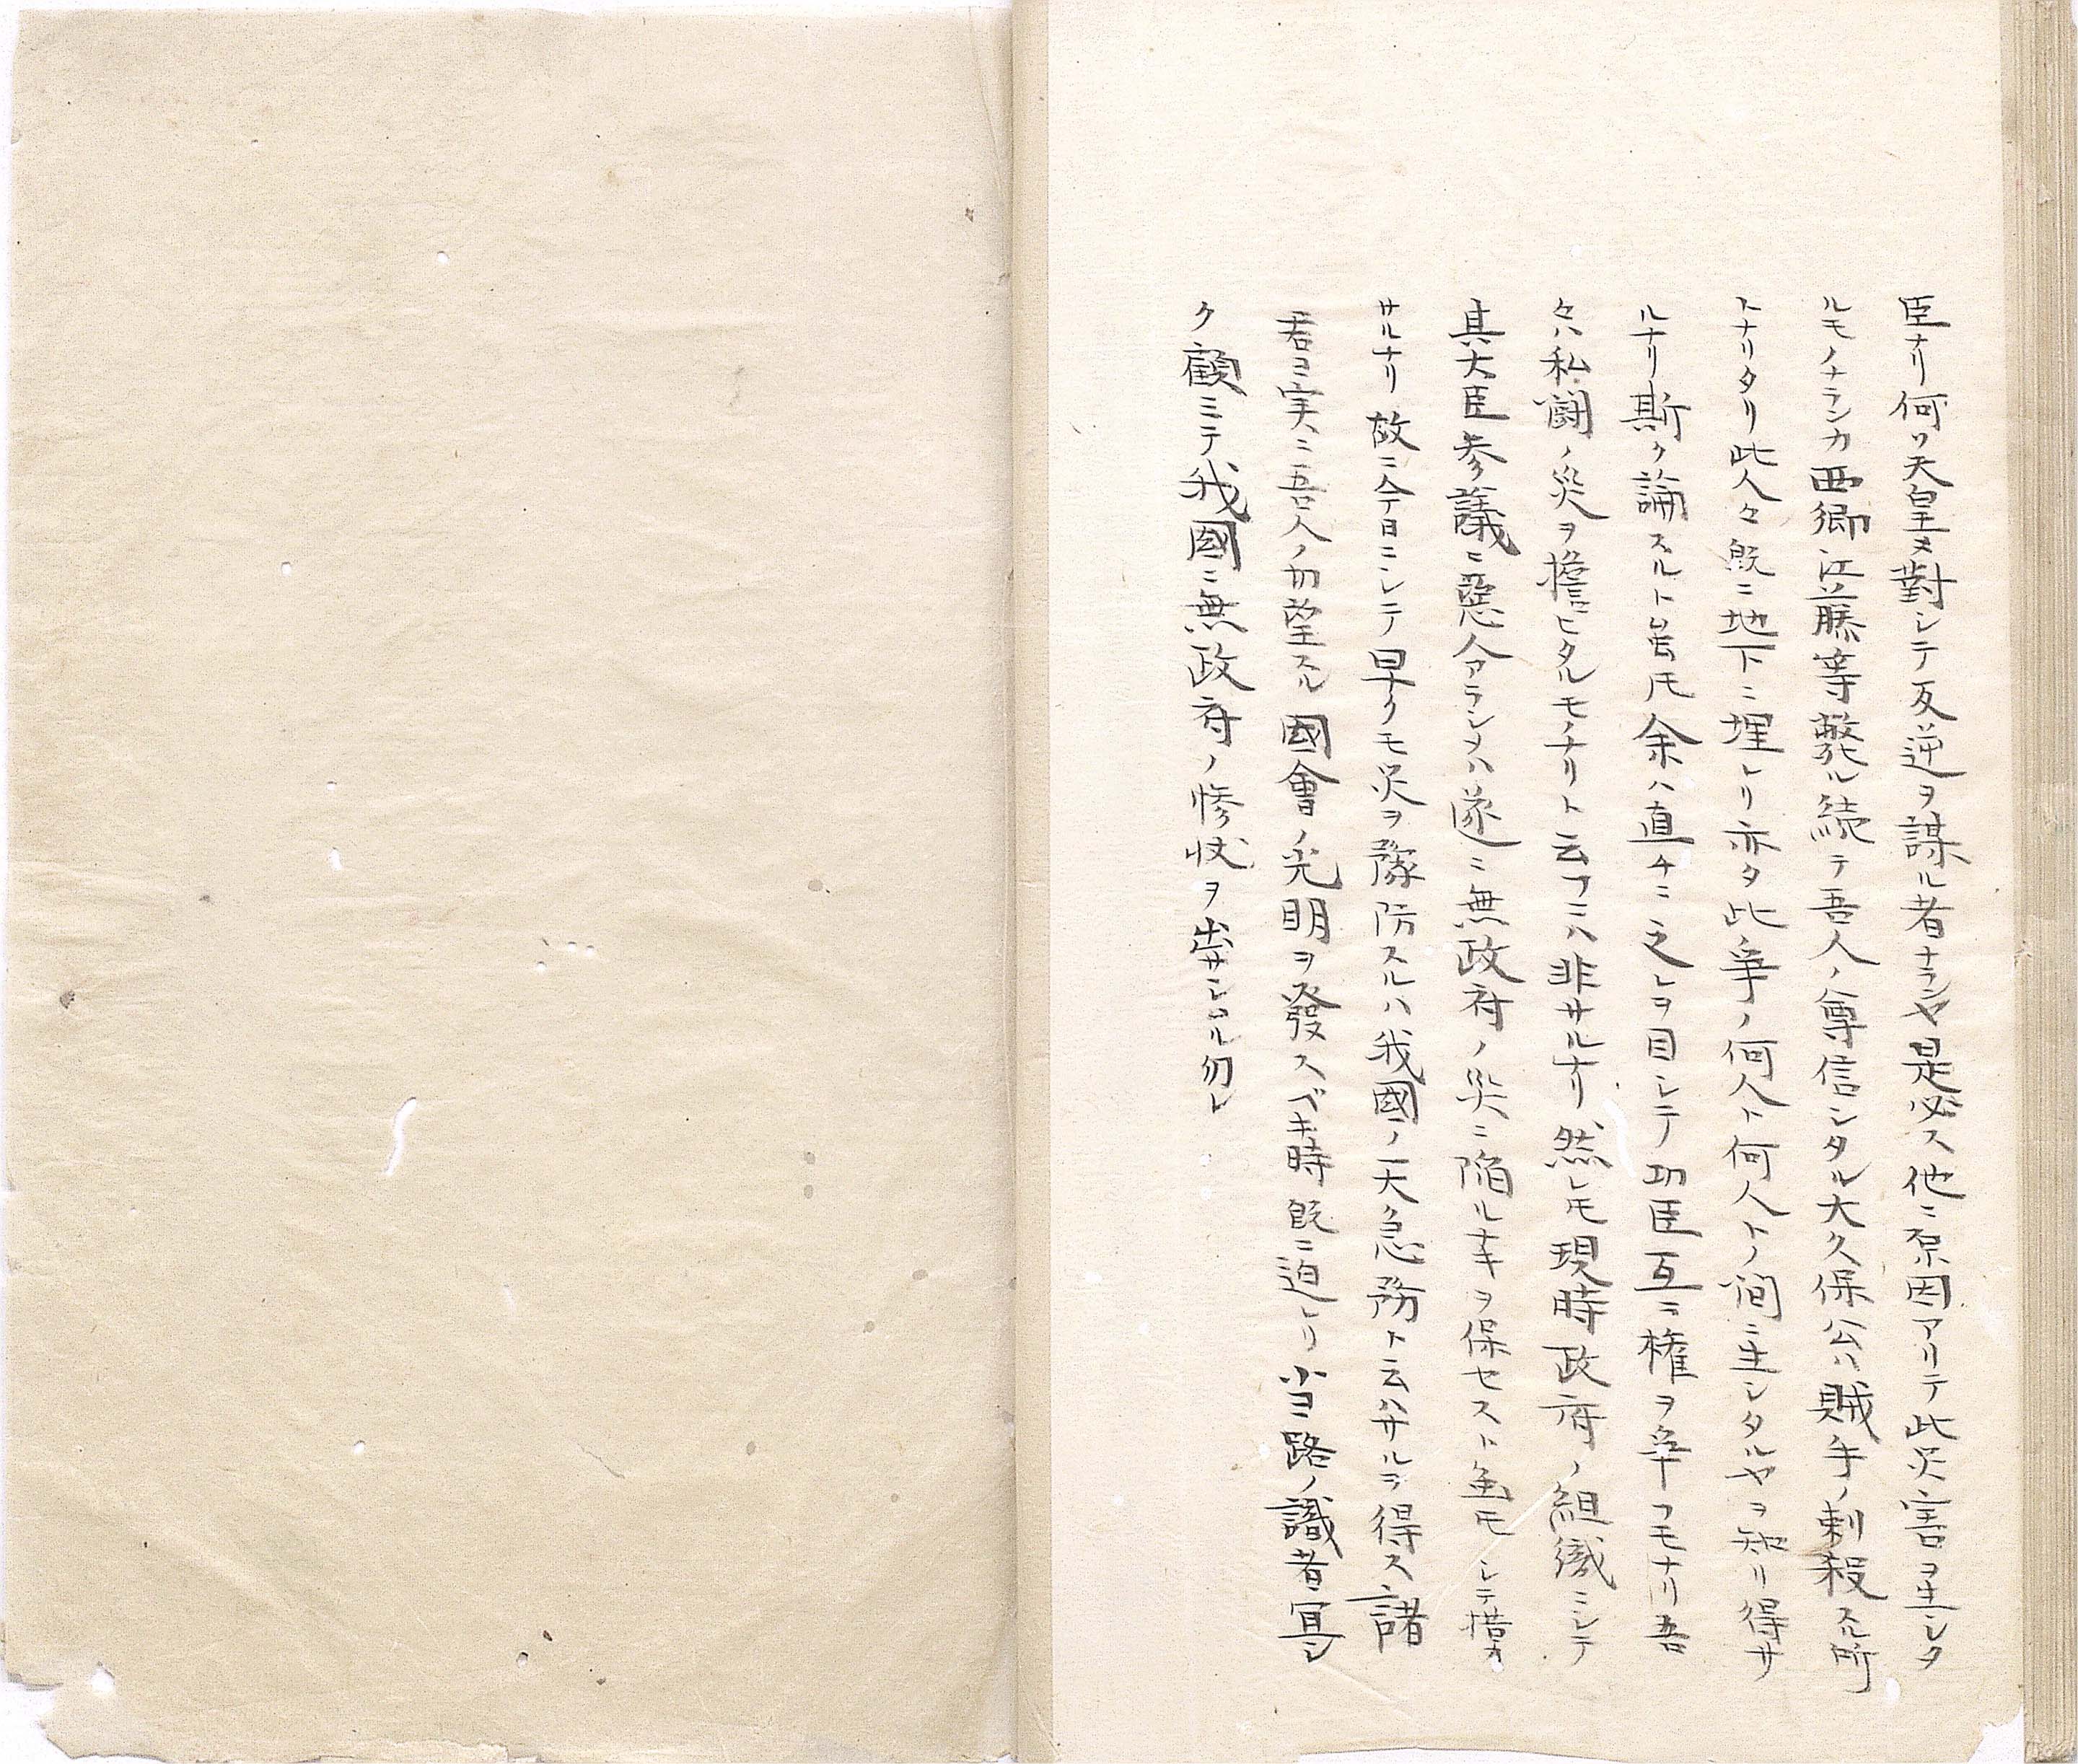 臣ナリ何ソ天皇ニ對シテ反逆ヲ謀ル者ナランヤ是必ス他ニ原因アリテ此災害ヲ生シタ
ルモノナランカ西郷江藤等斃ル続テ吾人ノ尊信シタル大久保公ハ賊手ノ刺殺スル所
トナリタリ此人々既ニ地下ニ埋レリ亦タ此争ノ何人ト何人トノ間ニ生シタルヤヲ知リ得サ
ルナリ斯ク論スルト雖𪜈余ハ直チニ之レヲ目シテ功臣互ニ権ヲ争フモナリ吾
々ハ私闘ノ災ヲ擔ヒタルモノナリト云フニハ非サルナリ然レ𪜈現時政府ノ組織ニシテ
其大臣参議ニ惡人アランヲハ遂ニ無政府ノ災ニ陥ルナキヲ保セスト雖𪜈シテ措カ
サルナリ故ニ今日ニシテ早クモ災ヲ豫防スルハ我國ノ一大急務ト云ハサルヲ得ス諸
君ヨ実ニ吾人ノ切望スル國會ノ光明ヲ發スベキ時既ニ迫レリ当路ノ識者冝シ
ク顧ミテ我國ニ無政府ノ惨状ヲ出サシムル勿レ